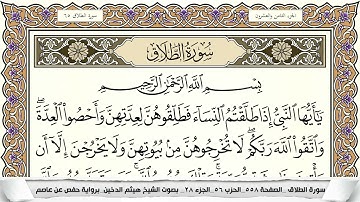 الجزء الثامن والعشرون
سورة الطلاق ٦٥
سُورَةُ الطَّلَاقِ
بِسْمِ اللَّهِ الرَّحْمَٰنِ الرَّحِيمِ
يَا أَيُّهَا النَّبِيُّ إِذَا طَلَّقْتُمُ النِّسَاءَ فَطَلِّقُوهُنَّ لِعِدَّتِهِنَّ وَأَحْصُوا الْعِدَّةَ ۖ
وَاتَّقُوا اللَّهَ رَبَّكُمْ ۖ لَا تُخْرِجُوهُنَّ مِنْ بُيُوتِهِنَّ وَلَا يَخْرُجْنَ إِلَّا أَنْ
سورة الطلاق _ الصفحة ٥٥٨_ الحزب ٥٦ _ الجزء ٢٨ _ بصوت الشيخ هيثم الدخين. برواية حفص عن عاصم